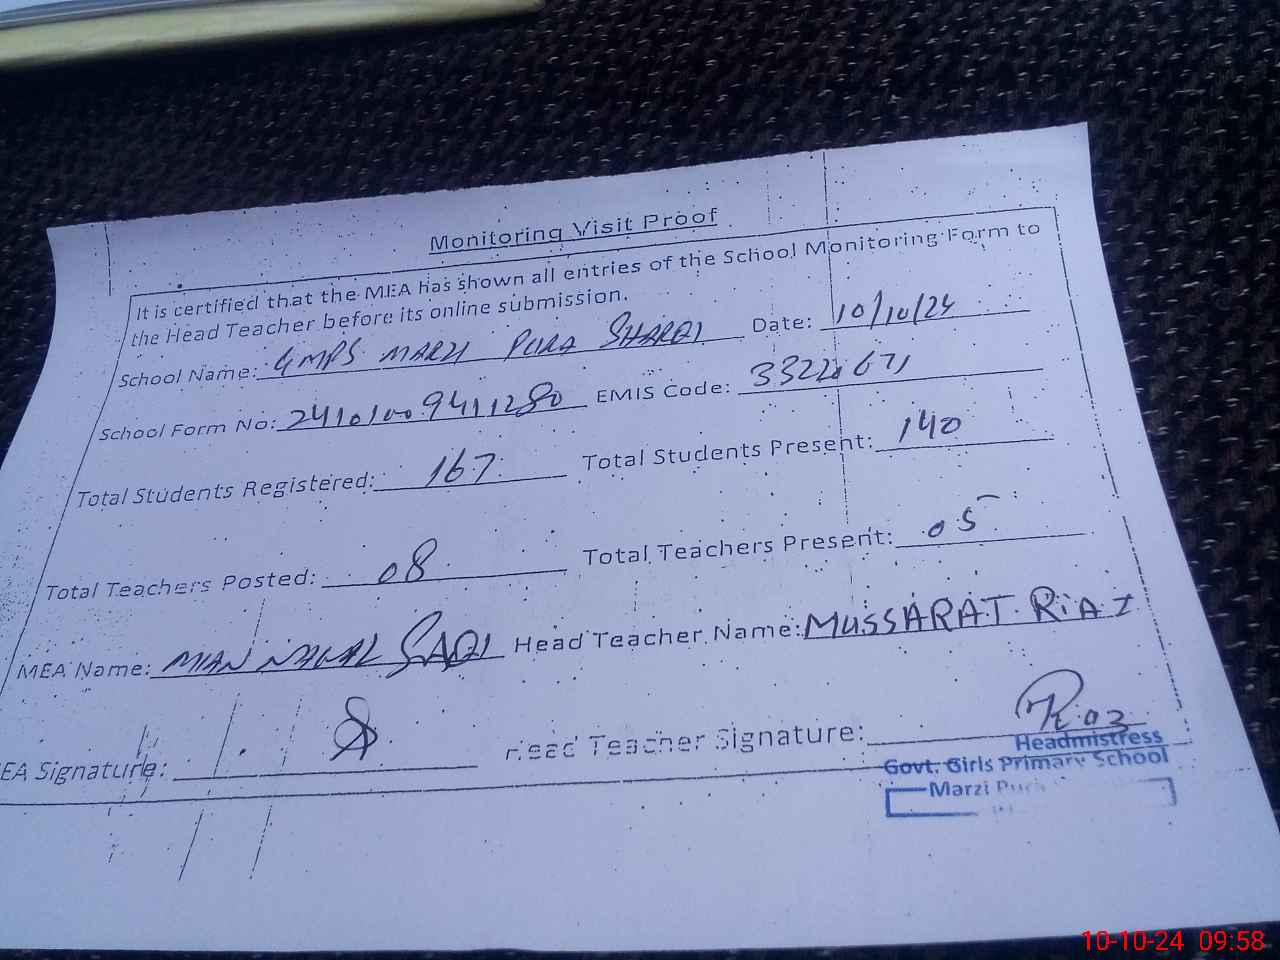 Monitoring Visit Proof
It is certified that the MEA has shown all entries of the School Monitoring Form to
the Head Teacher before its online submission.
School Name: GMPS MARZI PURA SHARQI Date: 10/10/24
School Form No: 24101009411280 EMIS Code: 33220671
Total Students Registered: 167 Total Students Present: 140
Total Teachers Posted: 08 Total Teachers Present: 05
MEA Name: MIAN SAQI Head Teacher Name: MUSSARAT RiAZ
EA Signature: Head Teacher Signature:
Headmistress
Govt. Girls Primary School
Marzi
10-10-24 09:58